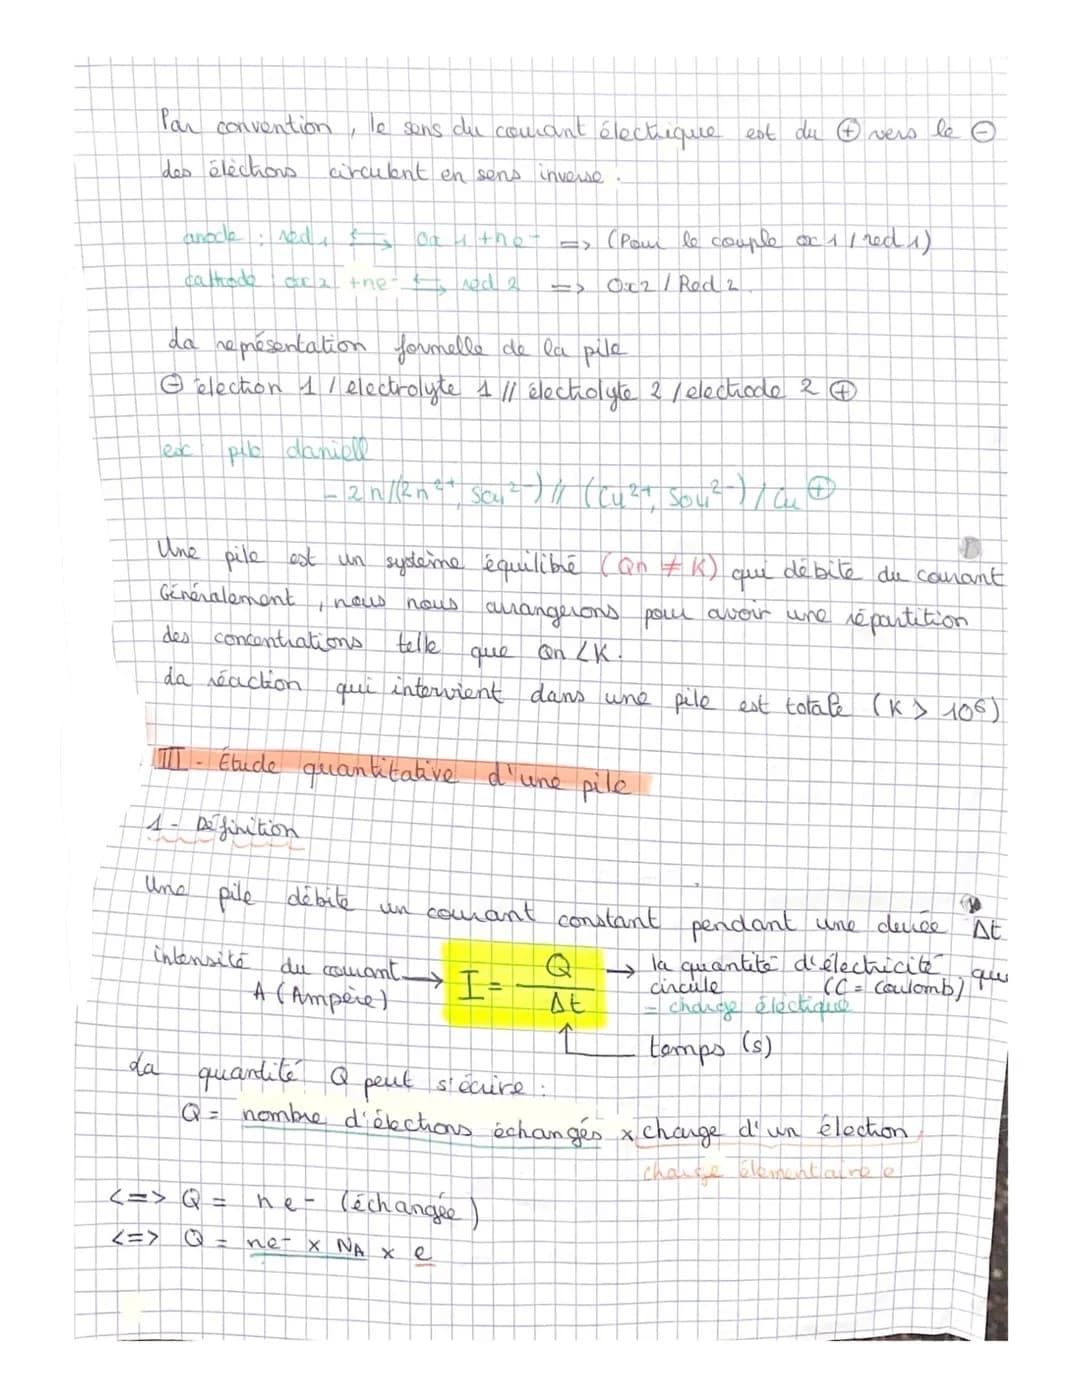 Par convention, le sens du courant électrique est du ⊕ vers le ⊖
des éléctrons circulent en sens inverse.
anode : red 1 ⇆ Ox 1 + ne- => (Pour le couple ox 1 / red 1)
cathode : ox 2 + ne- ⇆ red 2 => Ox 2 / Red 2.
La représentation formelle de la pile
⊖ électron 1 / électrolyte 1 // électrolyte 2 / electrode 2 ⊕
ex: pile daniell
- Zn/(Zn²⁺, SO₄²⁻) // (Cu²⁺, SO₄²⁻) / Cu ⊕
Une pile est un système équilibré (Qn ≠ K) qui débite du courant
Généralement, nous nous arrangerons pour avoir une répartition
des concentrations telle que Qn < K.
La réaction qui intervient dans une pile est totale (K > 10⁶)
III - Étude quantitative d'une pile
1 - Définition
Une pile débite un courant constant pendant une durée Δt
intensité du courant → I = Q / Δt → la quantité d'électricité que
A (Ampère) circule (C = Coulomb)
= charge éléctrique
temps (s)
La quantité Q peut s'écrire :
Q = nombre d'électrons échangés x charge d'un électron
charge élémentaire e
<=> Q = ne- (échangée)
<=> Q = ne- x NA x e